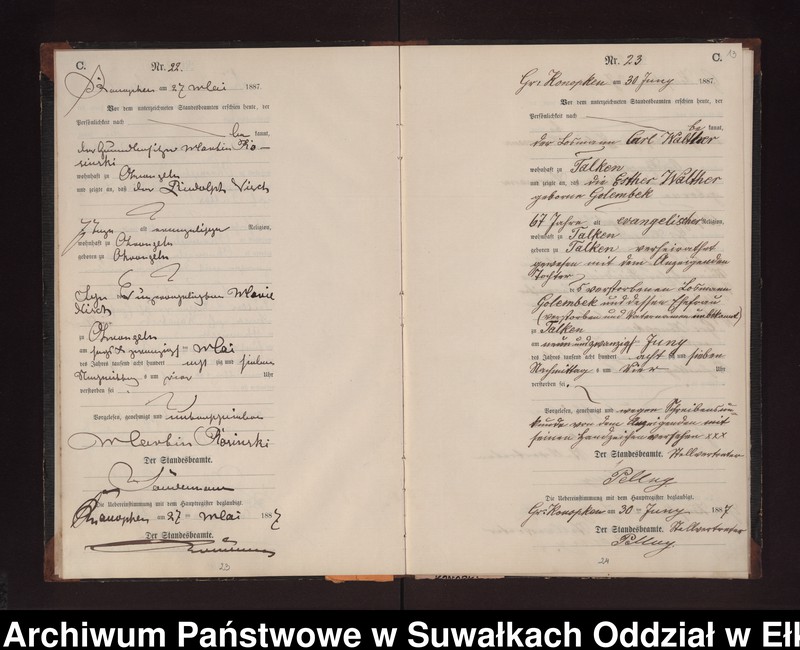 C.
Nr. 22.
am 27 Mai 1887.
Vor dem unterzeichneten Standesbeamten erschien heute, der
Persönlichkeit nach
be kannt,
der Grundbesitzer Martin Ro-
sinski
wohnhaft zu
und zeigte an, daß der Rudolph
alt evangelischer Religion,
wohnhaft zu
geboren zu
Sohn der unverehelichten Marie
zu
am sechs & zwanzigsten Mai
des Jahres tausend acht hundert acht zig und sieben
Nachmittags um vier Uhr
verstorben sei
Vorgelesen, genehmigt und unterschrieben
Martin Rosinski
Der Standesbeamte.
Die Uebereinstimmung mit dem Hauptregister beglaubigt.
am 27 ten Mai 1887
Der Standesbeamte.
23
C.
Nr. 23
Gr. Konopken am 30 Juny 1887
Vor dem unterzeichneten Standesbeamten erschien heute, der
Persönlichkeit nach
be kannt,
der Losmann Carl Walther
wohnhaft zu Talken
und zeigte an, daß die Esther Walther
geborene Golembek
67 Jahre alt evangelischer Religion,
wohnhaft zu Talken
geboren zu Talken verheirathet
gewesen mit dem Anzeigenden
Tochter
des verstorbenen Losmann
Golembek und dessen Ehefrau
(verstorben und Vatername unbekannt)
zu Talken
am neun und zwanzigsten Juny
des Jahres tausend acht hundert acht zig und sieben
Nachmittag s um vier Uhr
verstorben sei.
Vorgelesen, genehmigt und wegen Schreibensun-
kunde von dem Anzeigenden mit
seinen Handzeichen versehen xxx
Der Standesbeamte. Stellvertreter
Die Uebereinstimmung mit dem Hauptregister beglaubigt.
Gr. Konopken am 30 ten Juny 1887
Der Standesbeamte. Stellvertreter
24
Archiwum Państwowe w Suwałkach Oddział w Ełk